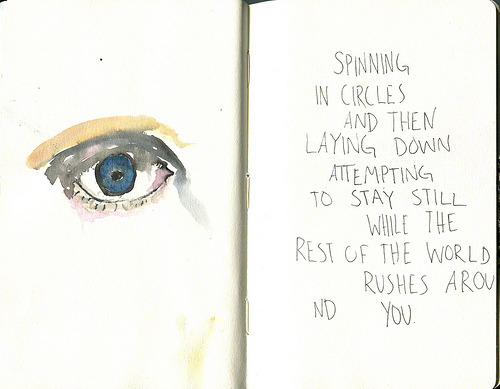 SPINNING
IN CIRCLES
AND THEN
LAYING DOWN
ATTEMPTING
TO STAY STILL
WHILE THE
REST OF THE WORLD
RUSHES AROU
ND YOU.